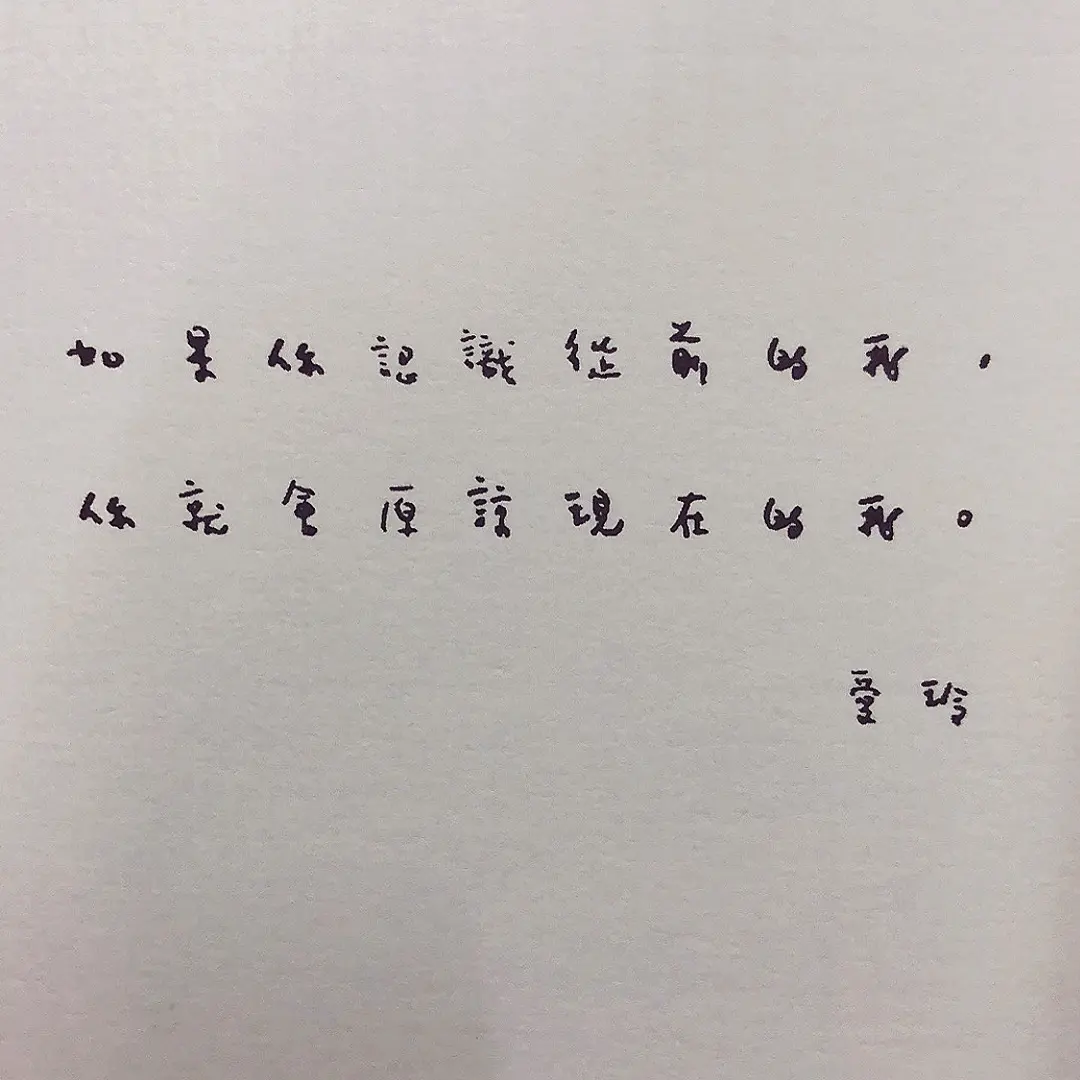 如果你認識從前的我，
你就會原諒現在的我。
愛玲